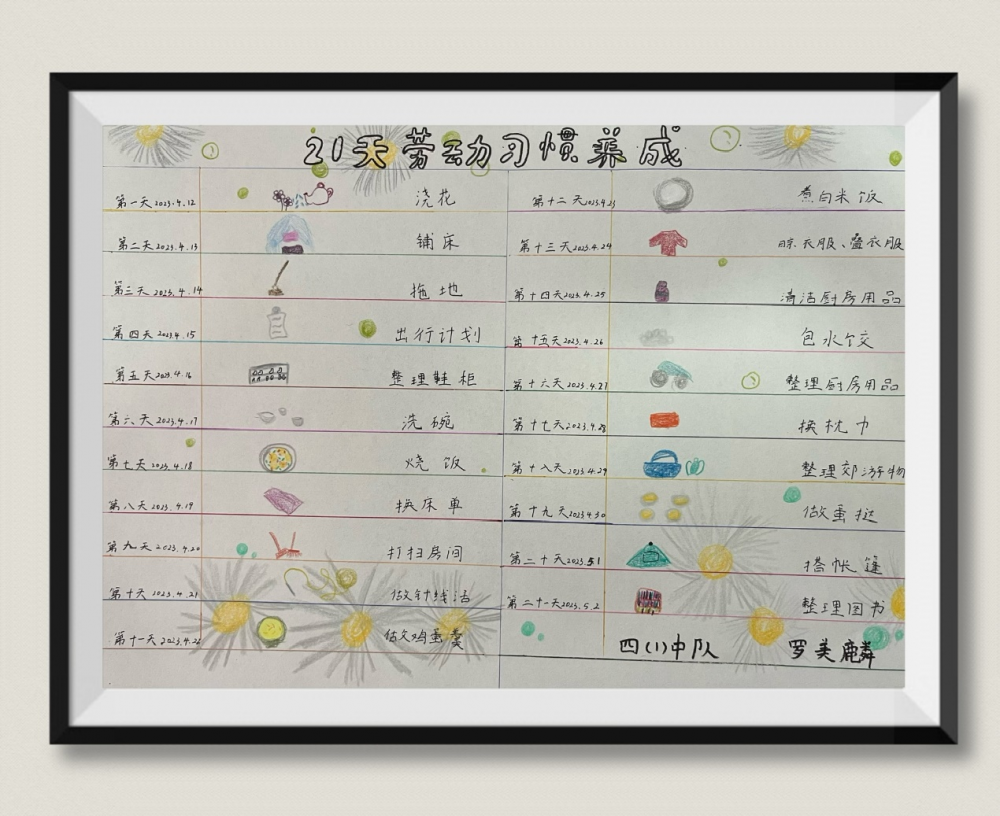 21天劳动习惯养成
第一天 2023.4.12 浇花
第二天 2023.4.13 铺床
第三天 2023.4.14 拖地
第四天 2023.4.15 出行计划
第五天 2023.4.16 整理鞋柜
第六天 2023.4.17 洗碗
第七天 2023.4.18 烧饭
第八天 2023.4.19 换床单
第九天 2023.4.20 打扫房间
第十天 2023.4.21 做针线活
第十一天 2023.4.22 做鸡蛋羹
第十二天 2023.4.23 煮白米饭
第十三天 2023.4.24 晾衣服、叠衣服
第十四天 2023.4.25 清洁厨房用品
第十五天 2023.4.26 包水饺
第十六天 2023.4.27 整理厨房用品
第十七天 2023.4.28 换枕巾
第十八天 2023.4.29 整理郊游物
第十九天 2023.4.30 做蛋挞
第二十天 2023.5.1 搭帐篷
第二十一天 2023.5.2 整理图书
四(1)中队 罗美麟